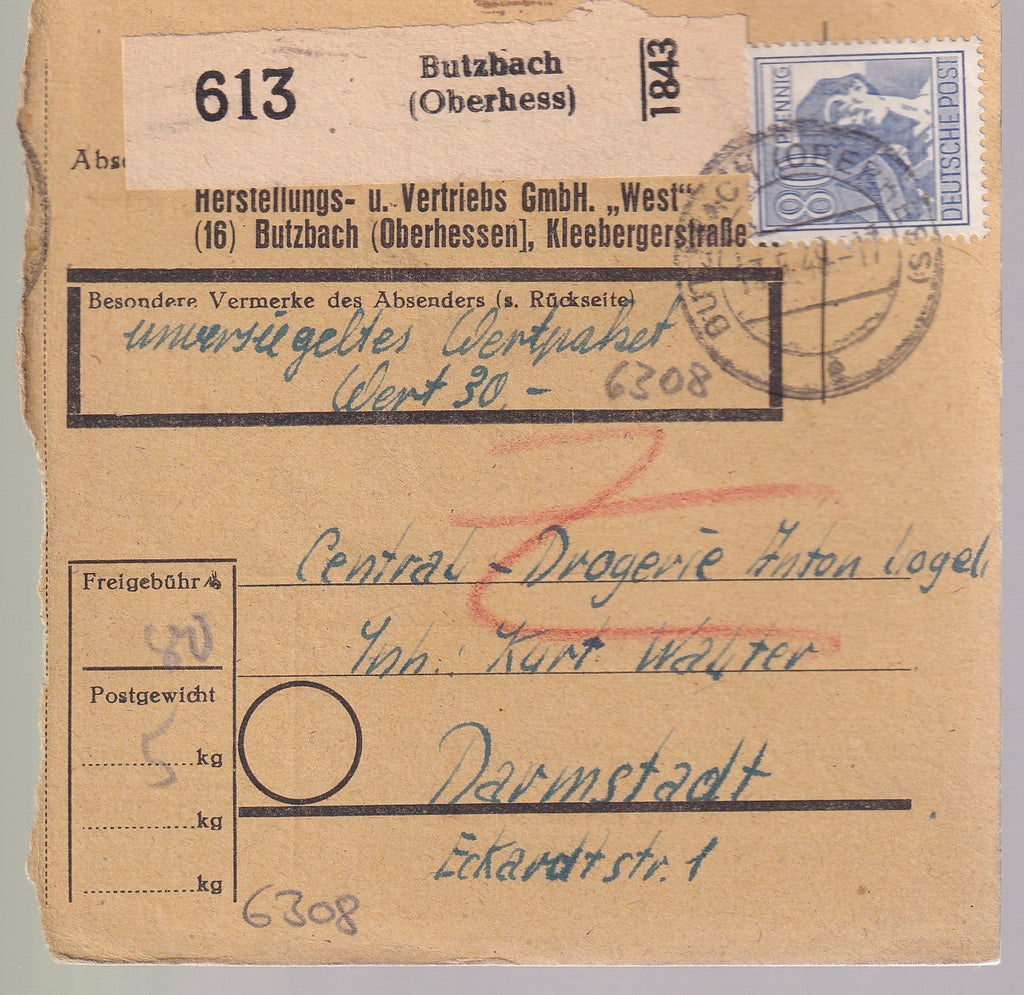 613
Butzbach
(Oberhess)
1843
80 PFENNIG
DEUTSCHE POST
Herstellungs- u. Vertriebs GmbH. „West“
(16) Butzbach (Oberhessen], Kleebergerstraße
Besondere Vermerke des Absenders (s. Rückseite)
unversiegeltes Wertpaket
Wert 30,-
6308
Central-Drogerie Anton Vogel
Freigebühr
Inh.: Kurt Walter
80
Postgewicht
5 kg
Darmstadt
kg
Eckardtstr. 1
kg
6308